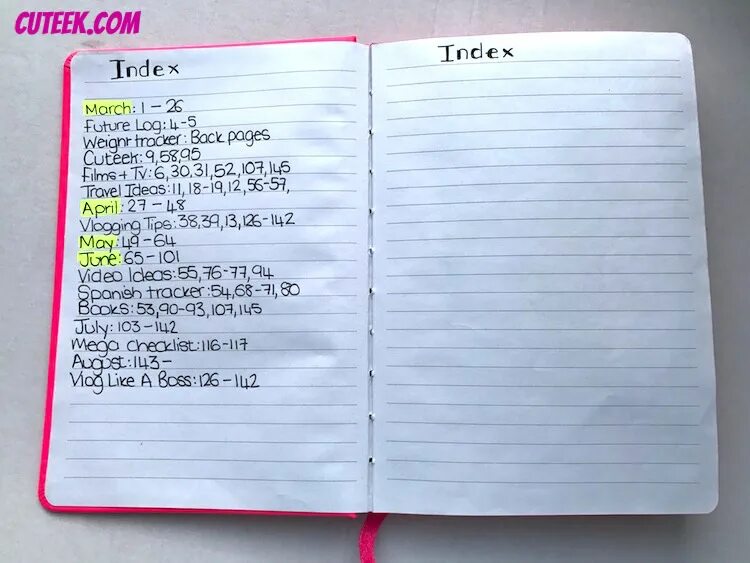 CUTEEK.COM
Index
March: 1 - 26
Future Log: 4-5
Weight tracker: Back pages
Cuteek: 9,58,95
Films + Tv: 6,30,31,52,107,145
Travel Ideas: 11, 18-19,12,56-57,
April: 27 - 48
Vlogging Tips: 38,39,13,126-142
May: 49 - 64
June: 65 - 101
Video Ideas: 55,76-77,94
Spanish tracker: 54,68-71,80
Books: 53,90-93,107,145
July: 103 - 142
Mega checklist: 116 - 117
August: 143 -
Vlog Like A Boss: 126 - 142
Index